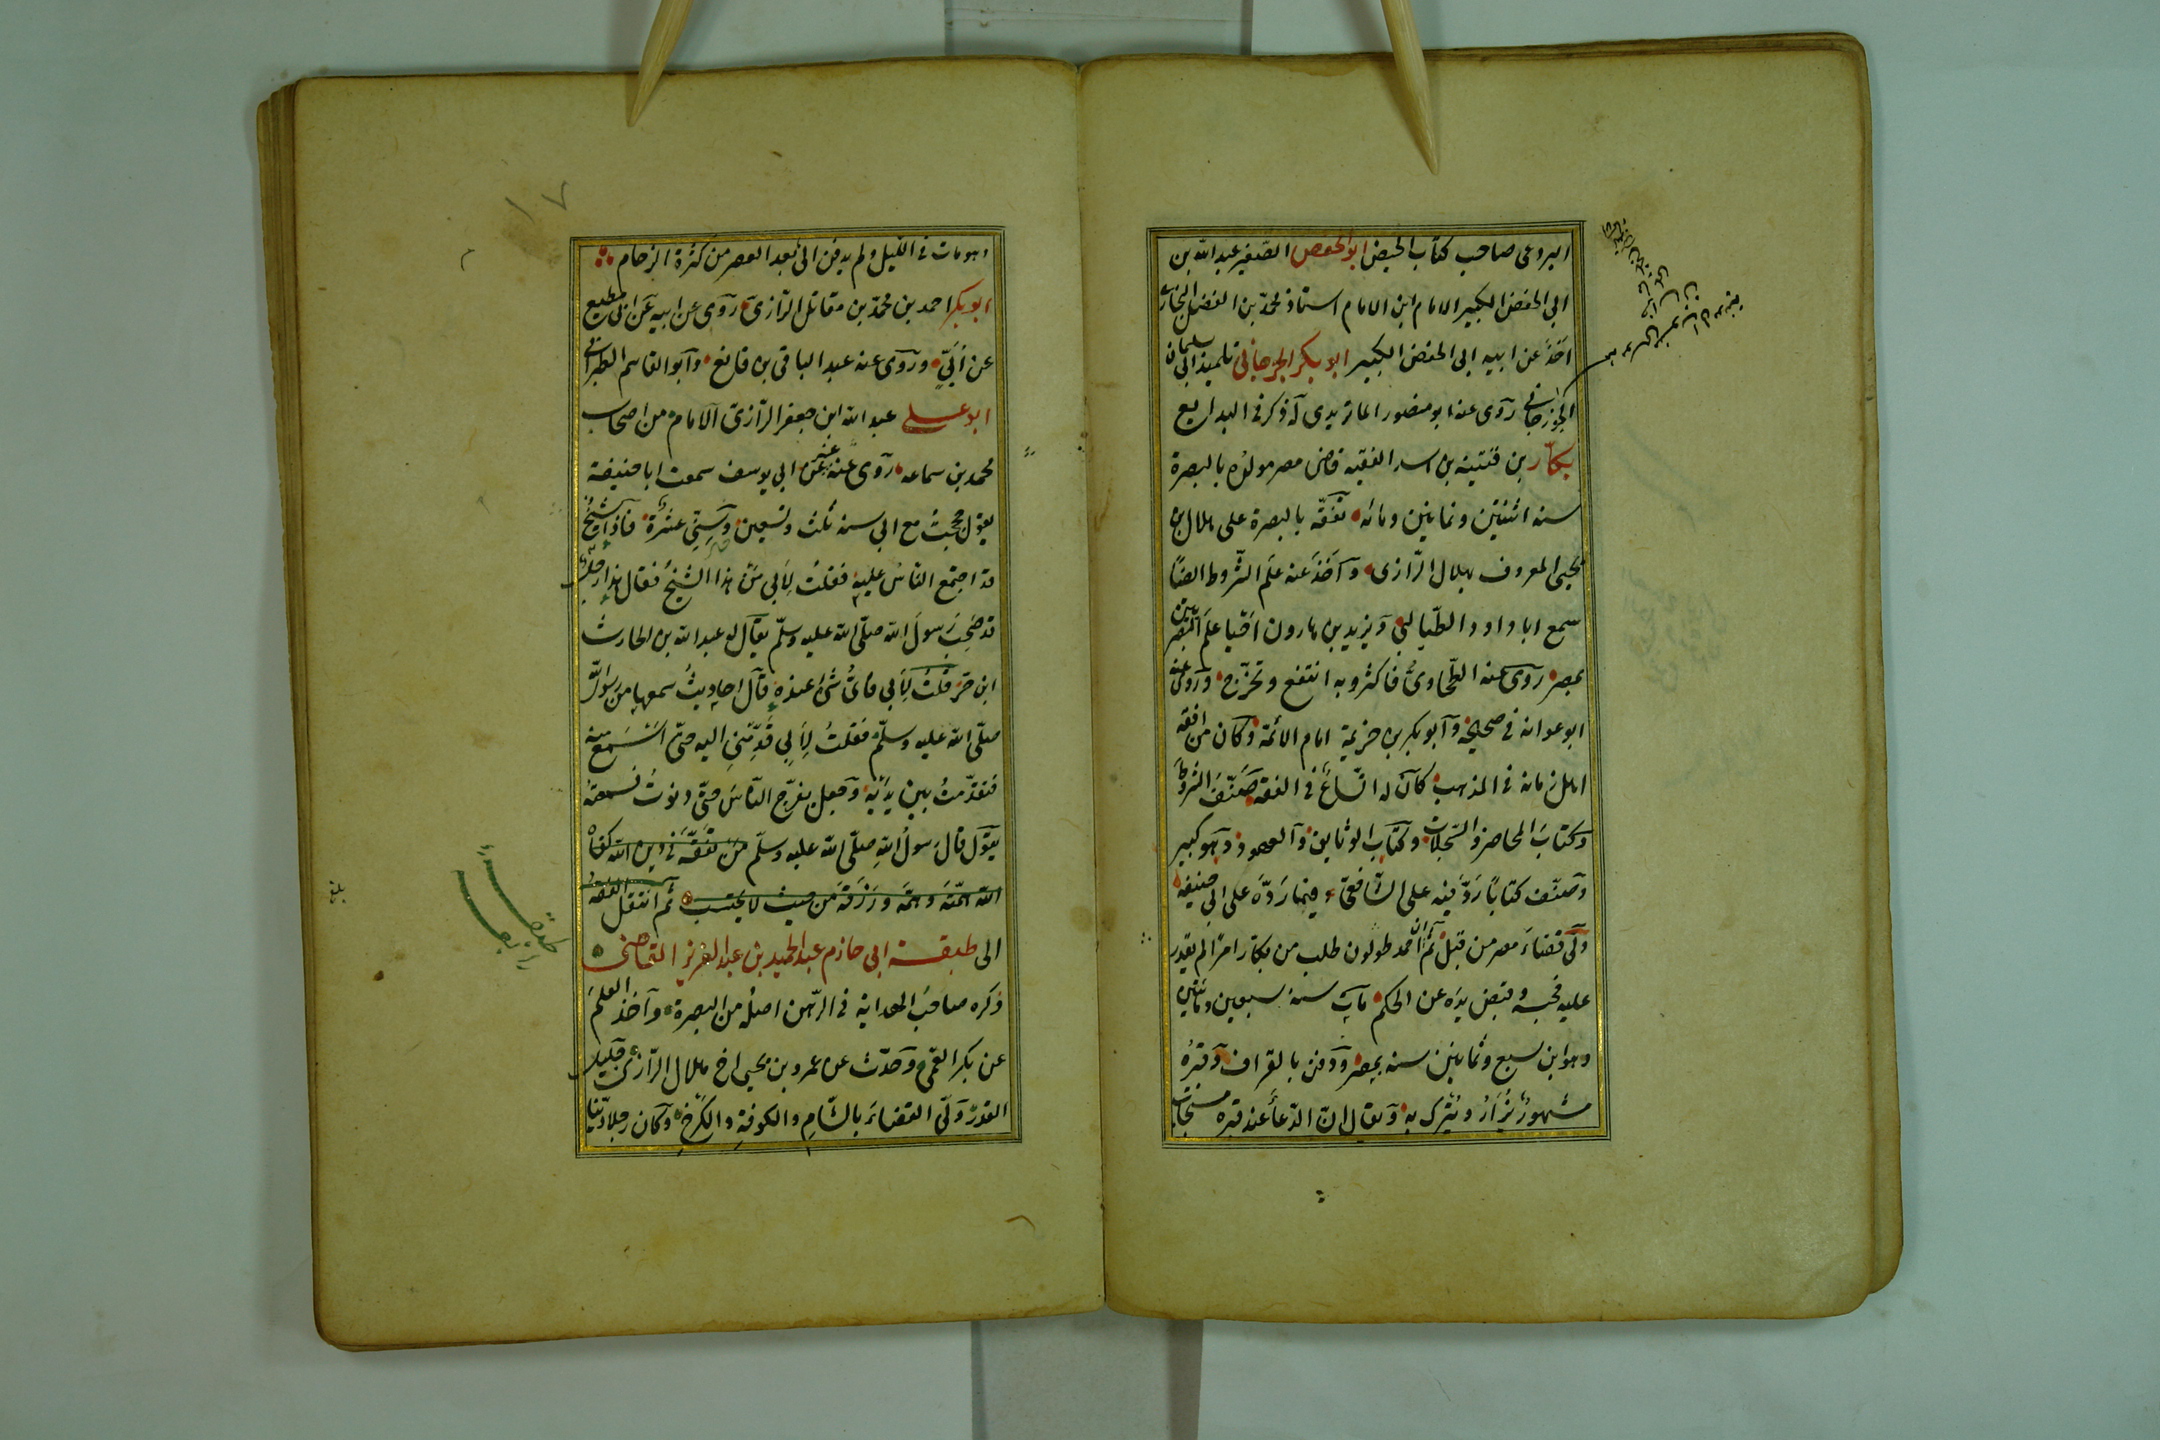 البردعى صاحب كتاب الحيض ابو الحفص الصّغير عبد الله بن
ابى الحفص الكبير الامام ابن الامام استاذ محمّد بن الفضل البخارى
اخذ عن ابيه ابى الحفص الكبير ابو بكر الجرجانى تلميذ ابى سليمان
الجوزجانى روى عنه ابو منصور الماتريدى له ذكر فى البدايع
بكّار بن قتيبة بن اسد الفقيه قاضى مصر مولده بالبصرة
سنة اثنتين وثمانين ومائة تفقّه بالبصرة على هلال بن
يحيى المعروف بهلال الرّازى وأخذ عنه علم الشّروط ايضًا
سمع ابا داود الطّيالسى ويزيد بن هارون احيا علم البصريين
بمصر روى عنه الطّحاوىّ فاكثر وبه انتفع وتخرّج وروى عنه
ابو عوانه فى صحيحه وأبو بكر بن خزيمة امام الائمّة وكان من افقه
اهل زمانه فى المذهب كان له اتّساع فى الفقه صنّف الشروط
وكتاب المحاضر والسّجلات وكتاب الوثايق والعهود وهو كبير
وصنّف كتابًا ردّ فيه على الشّافعىّ فيما ردّه على ابى حنيفة
ولّى قضاء مصر من قبل ثم ان احمد طولون طلب من بكار امرًا لم يقدر
عليه فحبسه وقبض يده عن الحكم مات سنة سبعين ومائتين
وهو ابن سبع وثمانين سنة بمصر ودفن بالقرافه وقبره
مشهور يزار ويتبرك به ويقال ان الدّعاء عند قبره مستجاب
١٧
وهو مات فى الليل ولم يدفن الى بعد العصر من كثرة الزحام
ابو بكر احمد بن محمّد بن مقاتل الرّازى روى عن ابيه عن ابى مطيع
عن أبىّ وروى عنه عبد الباقى بن قانع وأبو القاسم الطبرانى
ابو على عبد الله ابن جعفر الرّازى الامام من اصحاب
محمد بن سماعه روى عنه عن ابى يوسف سمعت ابا حنيفة
يقول حججت مع ابى سنة ثلث وتسعين وسنّى عشرة فاذا شيخ
قد اجتمع الناس عليه فقلت لأبى من هذا الشيخ فقال هذا رجل
قد صحب رسول الله صلّى الله عليه وسلّم يقال له عبد الله بن الحارث
ابن حرز قلت لأبى فأىّ شىء عنده قال احاديث سمعها من رسول الله
صلّى الله عليه وسلّم فقلت لأبى قدّمنى اليه حتى اسمع منه
فتقدّمت بين يديه وجعل يفرّج الناس حتى دنوت فسمعته
يقول قال رسول الله صلّى الله عليه وسلّم من تفقّه فى دين الله كفاه
الله همّته وهمّه ورزقه من حيث لا يحتسب ثم انتقل الفقه
الى طبقة ابى خازم عبد الحميد بن عبد العزيز القاضى
ذكره صاحب الهداية فى الرّهن اصله من البصرة وأخذ العلم
عن بكر القمى وحدّث عن عمرو بن يحيى اخ هلال الرّازى جليل
القدر ولّى القضاء بالشّام والكوفة والكرخ وكان رجلا ديّنا